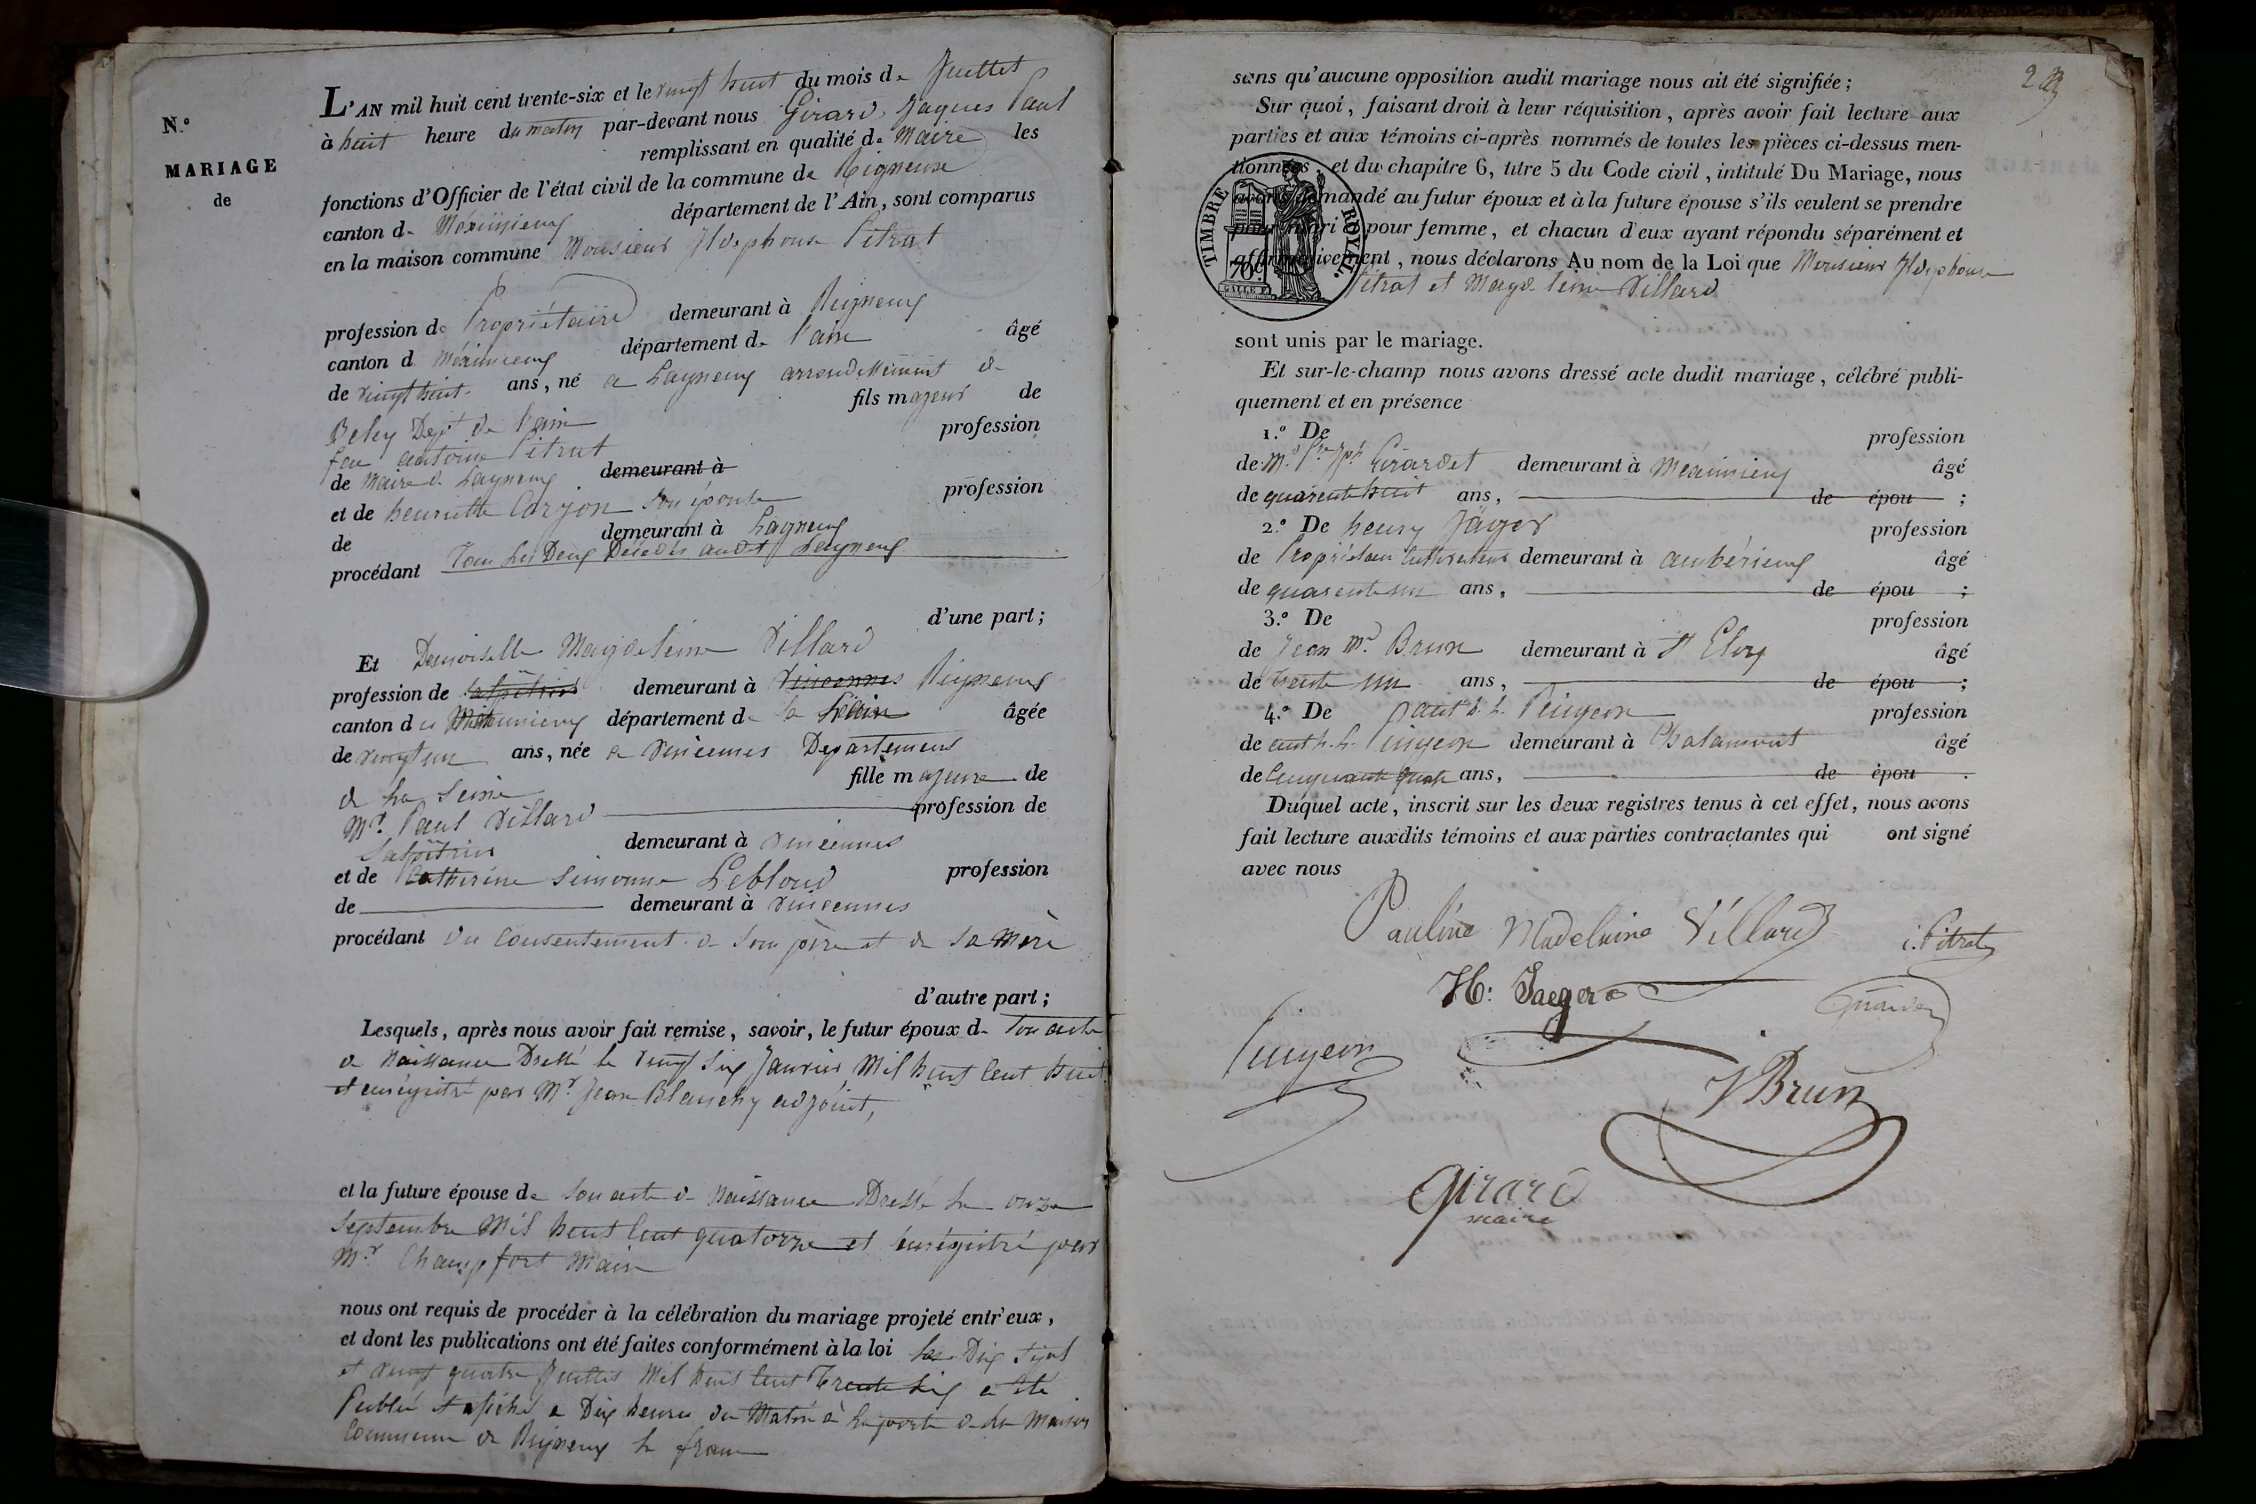 N.º
MARIAGE
de
L'AN mil huit cent trente-six et le vingt huit du mois de Juillet
à huit heure du matin par-devant nous Girard Jaques Paul
remplissant en qualité de Maire les
fonctions d'Officier de l'état civil de la commune de Rigneux
canton de Méximieux département de l'Ain, sont comparus
en la maison commune Monsieur Ildephonse Pitrat
profession de Propriétaire demeurant à Rigneux
canton d méximieux département de l'ain âgé
de vingt huit ans, né a Lagneux arrondissement de
Beley Dept de l'ain fils majeur de
feu antoine Pitrat profession
de Maire de Lagneux demeurant à
et de henriette Carjon son épouse profession
de demeurant à Lagneux
procédant Tous les Deux Décédés audt Lagneux
d'une part;
Et Demoiselle Magdeleine Villard
profession de demeurant à Vincennes Rigneux
canton de Méximieux département de la âgée
de vingt un ans, née a Vincennes Departement
de la Seine fille majeure de
Mr Paul Villard profession de
Salpêtrier demeurant à Vincennes
et de Catherine Simonne Leblond profession
de demeurant à Vincennes
procédant du Consentement de son père et de sa mère
d'autre part;
Lesquels, après nous avoir fait remise, savoir, le futur époux de son acte
de Naissance Dressé le vingt six Janvier Mil huit Cent huit
et enrégistré par Mr Jean Blanchy adjoint,
et la future épouse de son acte de Naissance Dressé le onze
Septembre Mil huit Cent quatorze et enrégistré par
Mr Champfort Maire
nous ont requis de procéder à la célébration du mariage projeté entr'eux,
et dont les publications ont été faites conformément à la loi les Dix sept
et vingt quatre Juillet Mil huit Cent Trente six a été
Publié et afiché a Dix heures du Matin à la porte de la Maison
Commune de Rigneux le franc
sans qu'aucune opposition audit mariage nous ait été signifiée;
Sur quoi, faisant droit à leur réquisition, après avoir fait lecture aux
parties et aux témoins ci-après nommés de toutes les pièces ci-dessus men-
tionnées, et du chapitre 6, titre 5 du Code civil, intitulé Du Mariage, nous
avons demandé au futur époux et à la future épouse s'ils veulent se prendre
pour mari et pour femme, et chacun d'eux ayant répondu séparément et
affirmativement, nous déclarons Au nom de la Loi que Monsieur Ildephonse
Pitrat et Magdeleine Villard
TIMBRE ROYAL.
sont unis par le mariage.
Et sur-le-champ nous avons dressé acte dudit mariage, célébré publi-
quement et en présence
1.º De profession
de Girardet demeurant à Méximieux âgé
de quarante huit ans, de épou ;
2.º De henry Jäger profession
de Propriétaire Cultivateur demeurant à ambérieux âgé
de quarante un ans, de épou ;
3.º De profession
de Jean Mie Brun demeurant à St Eloy âgé
de trente un ans, de épou ;
4.º De Peugeon profession
de Peugeon demeurant à Chalamont âgé
de Cinquante quatre ans, de épou .
Duquel acte, inscrit sur les deux registres tenus à cet effet, nous avons
fait lecture auxdits témoins et aux parties contractantes qui ont signé
avec nous
Pauline Madeleine Villard i. Pitrat
H: Jaeger
Girardet
Peugeon
J Brun
Girard
maire